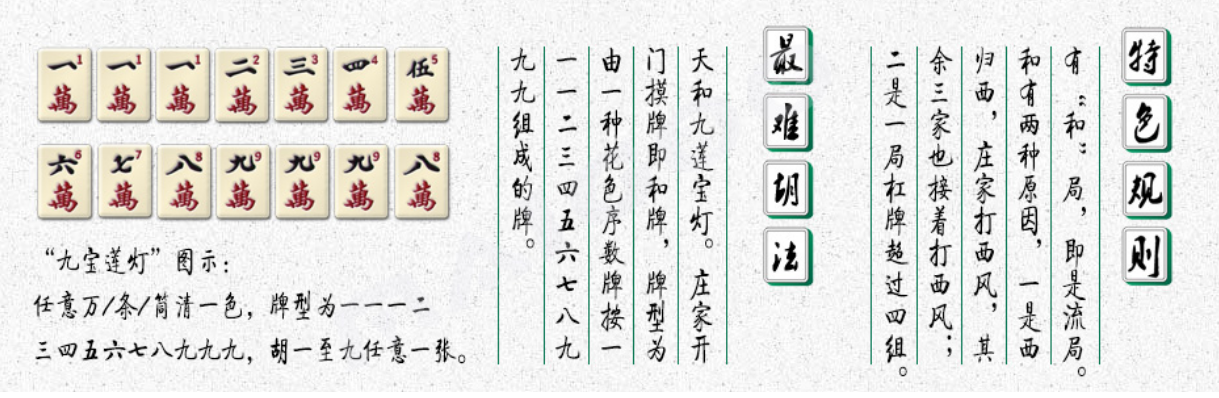 特色规则
有“和”局，即是流局。
和有两种原因，一是西
归西，庄家打西风，其
余三家也接着打西风；
二是一局杠牌超过四组。
最难胡法
天和九莲宝灯。庄家开
门摸牌即和牌，牌型为
由一种花色序数牌按一
一一二三四五六七八九
九九组成的牌。
一1萬 一1萬 一1萬 二2萬 三3萬 四4萬 伍5萬
六6萬 七7萬 八8萬 九9萬 九9萬 九9萬 八8萬
“九宝莲灯”图示：
任意万/条/筒清一色，牌型为一一一二
三四五六七八九九九，胡一至九任意一张。